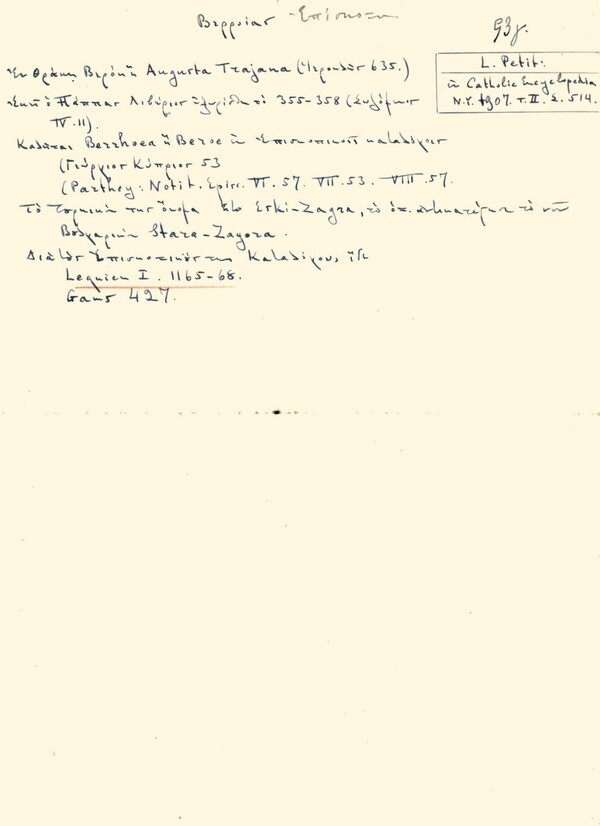 Βερροίας Επίσκοποι
93γ.
L. Petit:
ἐν Catholic Encyclopedia
N.Y. 1907. T. II. Σ. 514.
Ἐν Θράκῃ Βερόη ἢ Augusta Trajana (Ἱεροκλῆς 635.)
Ἐκεῖ ὁ Πάππας Λιβέριος ἐξωρίσθη τὸ 355-358 (Σωζόμενος
IV.11).
Καλεῖται Berrhoea ἢ Beroe ἐν Ἐπισκοπικοῖς καταλόγοις
(Γεώργιος Κύπριος 53
(Parthey: Notit. Episc. VI. 57. VII. 53. VIII. 57.
Τὸ Τουρκικόν της ὄνομα Eski-Zagra, τὸ ὁπ. τὸ νῦν
Βουλγαρικὸν Stara-Zagora.
Διὰ τοὺς Ἐπισκοπικούς της Καταλόγους ἴδε
Lequien I. 1165-68.
Gams 427.